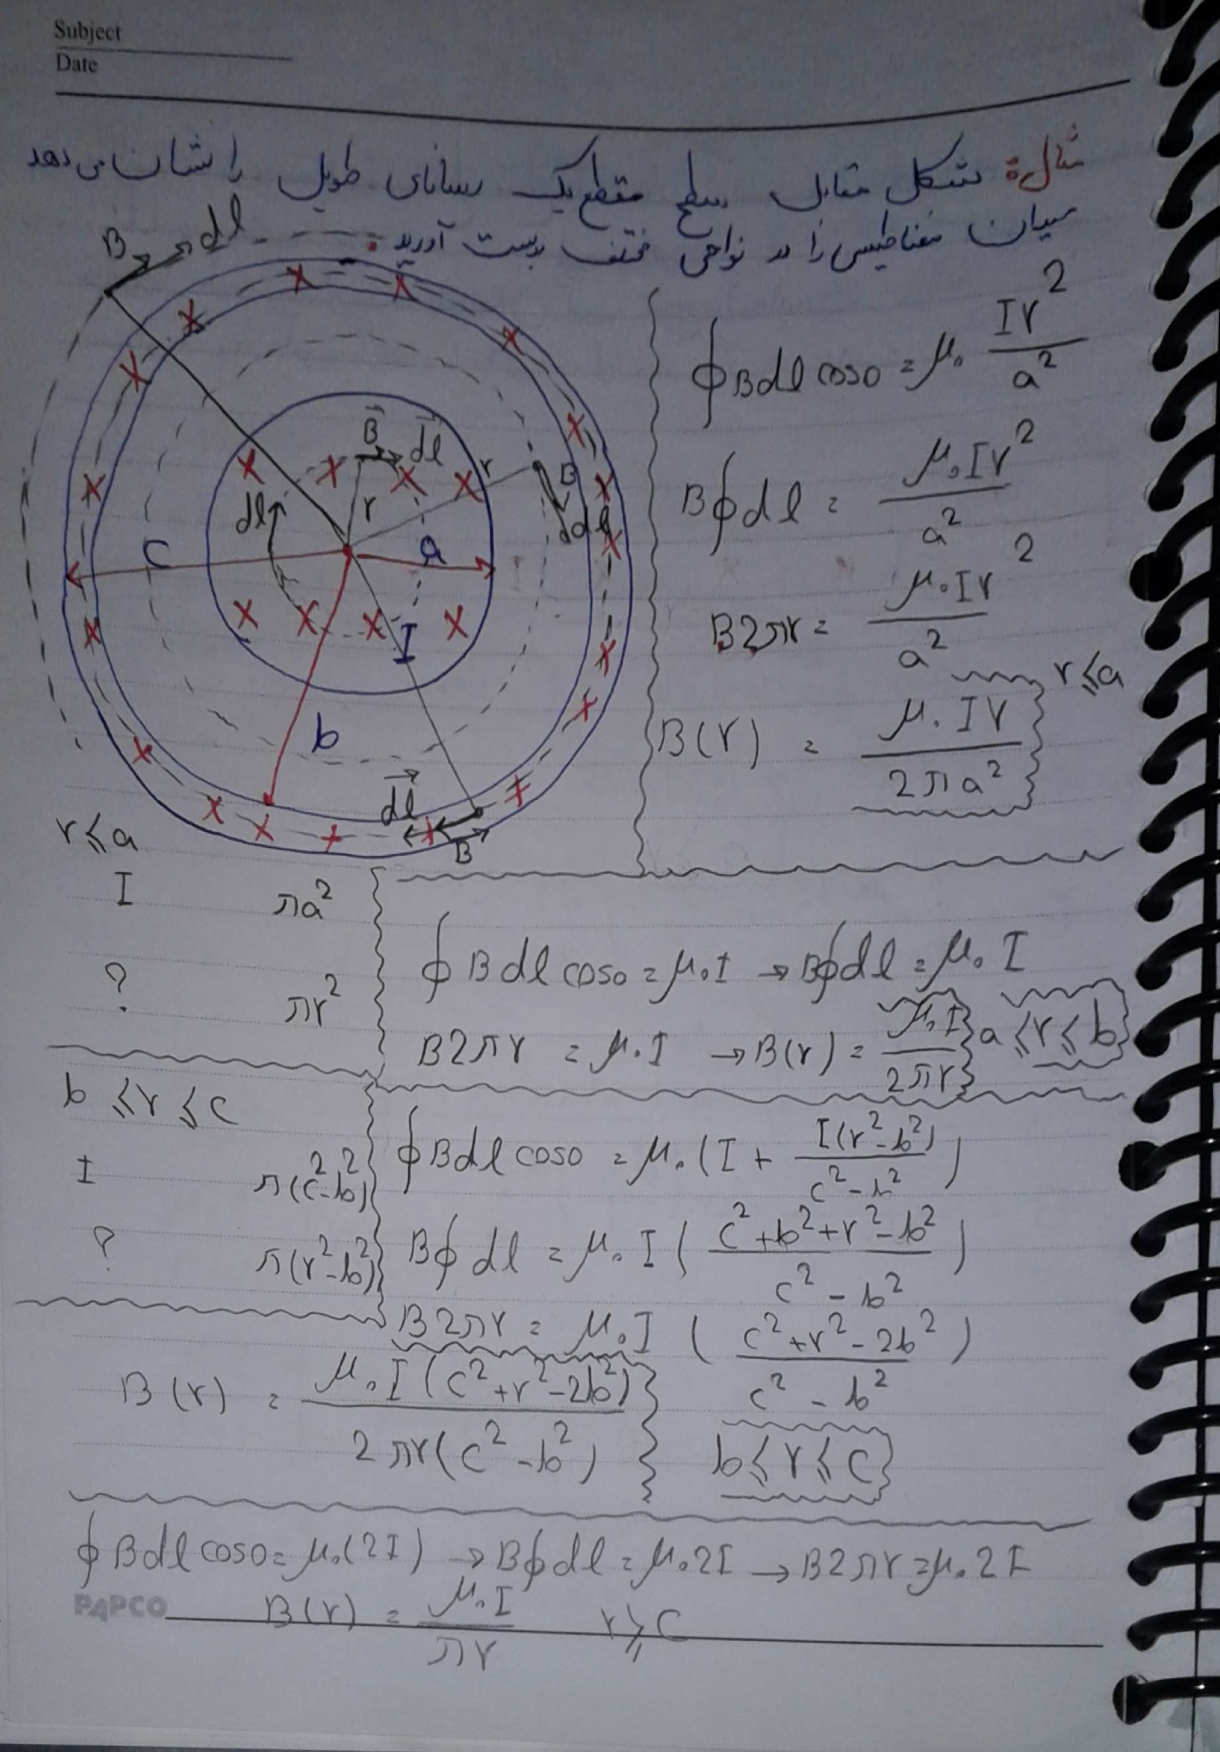 Subject
Date
مثال: شکل مقابل سطح مقطع یک رسانای طویل را نشان می دهد
میدان مغناطیسی را در نواحی مختلف بدست آورید.
B dl
B dl
r
dl
r
B
dl
C
a
I
b
dl
B
∮Bdl cos0 = μ₀ Ir²/a²
B∮dl = μ₀Ir²/a²
B2πr = μ₀Ir²/a²
B(r) = μ₀Ir/2πa² r≤a
r≤a
I πa²
? πr²
∮Bdl cos0 = μ₀I → B∮dl = μ₀I
B2πr = μ₀I → B(r) = μ₀I/2πr a≤r≤b
b≤r≤c
I π(c²-b²)
? π(r²-b²)
∮Bdl cos0 = μ₀(I + I(r²-b²)/c²-b²)
B∮dl = μ₀I(c²+b²+r²-b²/c²-b²)
B2πr = μ₀I(c²+r²-2b²/c²-b²)
B(r) = μ₀I(c²+r²-2b²)/2πr(c²-b²) b≤r≤c
∮Bdl cos0 = μ₀(2I) → B∮dl = μ₀2I → B2πr = μ₀2I
PAPCO
B(r) = μ₀I/πr r≥C